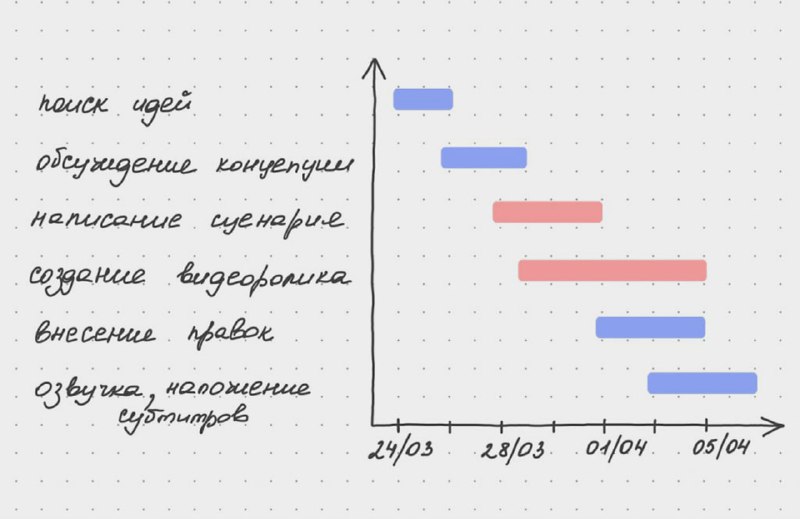 поиск идей
обсуждение концепции
написание сценария
создание видеоролика
внесение правок
озвучка, наложение
субтитров
24/03 28/03 01/04 05/04